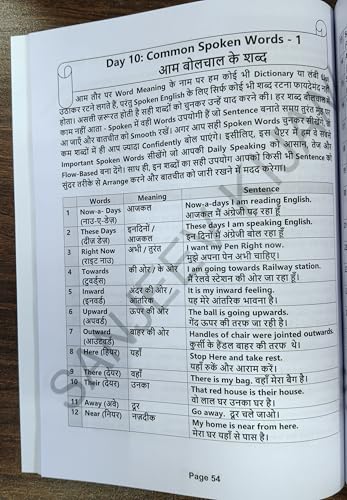 Day 10: Common Spoken Words - 1
आम बोलचाल के शब्द
आम तौर पर Word Meaning के नाम पर हम कोई भी Dictionary या लंबी
उठाकर रटने लगते हैं, परंतु Spoken English के लिए सिर्फ कोई भी शब्द रटना फायदेमंद नहीं
होता। असली ज़रूरत होती है सही शब्दों को चुनकर उन्हें याद करने की। हर शब्द बोलचाल में
काम नहीं आता - Spoken में वही Words उपयोगी हैं जो Sentence बनाते समय तुरंत मुंह पर
आ जाएँ और बातचीत को Smooth रखें। अगर आप सही Spoken Words चुनकर सीखेंगे, तो
कम शब्दों में ही आप ज्यादा Confidently बोल पाएंगे। इसीलिए, इस चैप्टर में हम वे सबसे
Important Spoken Words सीखेंगे जो आपकी Daily Speaking को आसान, तेज और
Flow-Based बना देंगे। साथ ही, इन शब्दों का सही उपयोग आपको किसी भी Sentence को
सुंदर तरीके से Arrange करने और बातचीत को जारी रखने में मदद करेगा।
Words Meaning Sentence
1 Now-a- Days आजकल Now-a-days I am reading English.
(नाउ-ए-डेज़) आजकल मैं अंग्रेजी पढ़ रहा हूँ
2 These Days इनदिनों / These days I am speaking English.
(दीज़ डेज़) आजकल इन दिनों मैं अंग्रेजी बोल रहा हूँ
3 Right Now अभी / तुरंत I want my Pen Right now.
(राइट नाउ) मुझे अपना पेन अभी चाहिए।
4 Towards की ओर / के ओर I am going towards Railway station.
(टुवर्ड्स) मैं रेलवे स्टेशन की ओर जा रहा हूँ।
5 Inward अंदर की ओर / It is my inward feeling.
(इनवर्ड) आंतरिक यह मेरे आंतरिक भावना है।
6 Upward ऊपर की ओर The ball is going upwards.
(अपवर्ड) गेंद ऊपर की तरफ जा रही है।
7 Outward बाहर की ओर Handles of chair were jointed outwards.
(आउटवर्ड) कुर्सी के हैंडल बाहर की तरफ थे।
8 Here (हियर) यहाँ Stop Here and take rest.
यहाँ रुकें और आराम करें।
9 There (देयर) वहाँ There is my bag. वहाँ मेरा बैग है।
10 Their (देयर) उनका That red house is their house.
वो लाल घर उनका घर है।
11 Away (अवे) दूर Go away. दूर चले जाओ।
12 Near (नियर) नज़दीक My home is near from here.
मेरा घर यहाँ से पास है।
Page 54